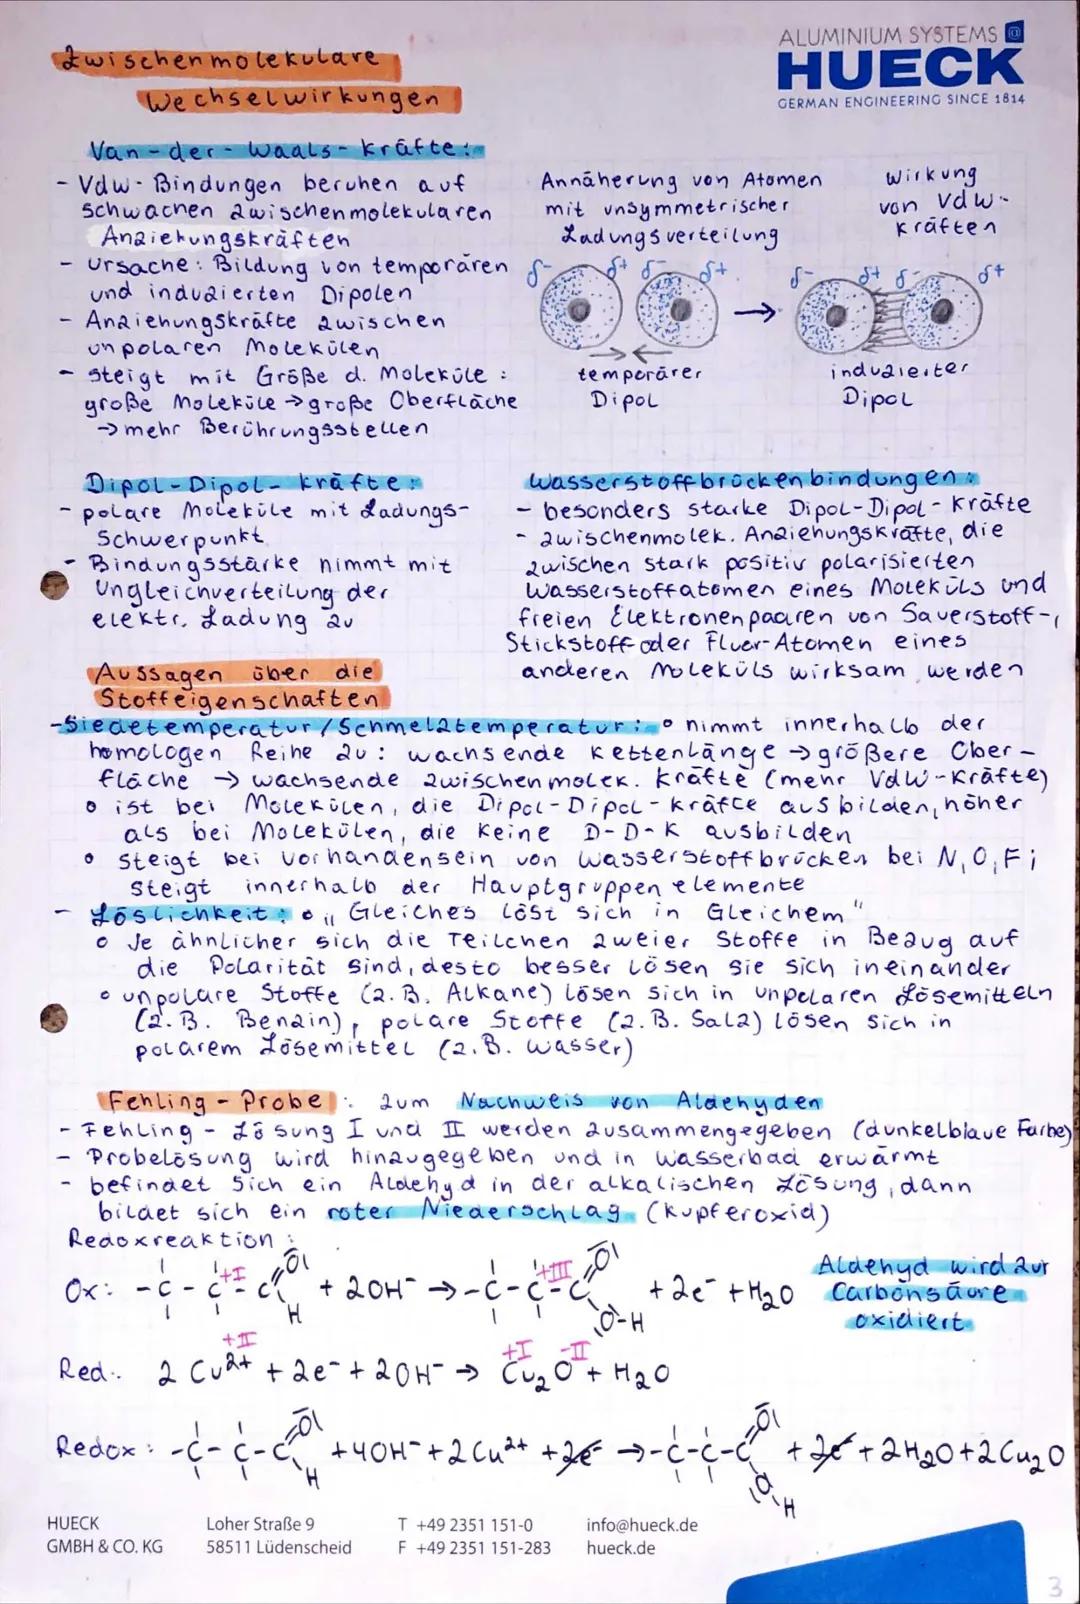 Zwischenmolekulare
Wechselwirkungen
ALUMINIUM SYSTEMS @
HUECK
GERMAN ENGINEERING SINCE 1814
Van-der-Waals-Kräfte:
- VdW-Bindungen beruhen auf
schwachen zwischenmolekularen
Anziehungskräften
- Ursache: Bildung von temporären
und induzierten Dipolen
- Anziehungskräfte zwischen
unpolaren Molekülen
- steigt mit Größe d. Moleküle:
große Moleküle → große Oberfläche
→ mehr Berührungsstellen
Annäherung von Atomen
mit unsymmetrischer
Ladungsverteilung
Wirkung
von VdW-
Kräften
δ- δ+ δ- δ+ → δ- δ+ δ- δ+
temporärer
Dipol
induzierter
Dipol
Dipol-Dipol-Kräfte:
- polare Moleküle mit Ladungs-
schwerpunkt
- Bindungsstärke nimmt mit
Ungleichverteilung der
elektr. Ladung zu
Wasserstoffbrückenbindungen:
- besonders starke Dipol-Dipol-Kräfte
- zwischenmolek. Anziehungskräfte, die
zwischen stark positiv polarisierten
Wasserstoffatomen eines Moleküls und
freien Elektronenpaaren von Sauerstoff-,
Stickstoff- oder Fluor-Atomen eines
anderen Moleküls wirksam werden
Aussagen über die
Stoffeigenschaften
- Siedetemperatur/Schmelztemperatur: o nimmt innerhalb der
homologen Reihe zu: wachsende Kettenlänge → größere Ober-
fläche → wachsende zwischenmolek. Kräfte (mehr VdW-Kräfte)
o ist bei Molekülen, die Dipol-Dipol-Kräfte ausbilden, höher
als bei Molekülen, die keine D-D-K ausbilden
o steigt bei Vorhandensein von Wasserstoffbrücken bei N, O, F;
steigt innerhalb der Hauptgruppenelemente
- Löslichkeit: o „Gleiches löst sich in Gleichem"
o Je ähnlicher sich die Teilchen zweier Stoffe in Bezug auf
die Polarität sind, desto besser lösen sie sich ineinander
o unpolare Stoffe (z.B. Alkane) lösen sich in unpolaren Lösemitteln
(z.B. Benzin), polare Stoffe (z.B. Salz) lösen sich in
polarem Lösemittel (z.B. Wasser)
Fehling-Probe: zum Nachweis von Aldehyden
- Fehling-Lösung I und II werden zusammengegeben (dunkelblaue Farbe)
- Probelösung wird hinzugegeben und in Wasserbad erwärmt
- befindet sich ein Aldehyd in der alkalischen Lösung, dann
bildet sich ein roter Niederschlag (Kupferoxid)
Redoxreaktion:
Ox: -C-C-C +I O H + 2OH⁻ → -C-C-C +III O O-H + 2e⁻ + H₂O
Aldehyd wird zur
Carbonsäure
oxidiert
Red.: 2 Cu²⁺ +II + 2e⁻ + 2OH⁻ → Cu₂O +I -II + H₂O
Redox: -C-C-C O H + 4OH⁻ + 2Cu²⁺ + 2e⁻ → -C-C-C O O-H + 2e⁻ + 2H₂O + 2Cu₂O
HUECK
GMBH & CO. KG
Loher Straße 9
58511 Lüdenscheid
T +49 2351 151-0
F +49 2351 151-283
info@hueck.de
hueck.de
3